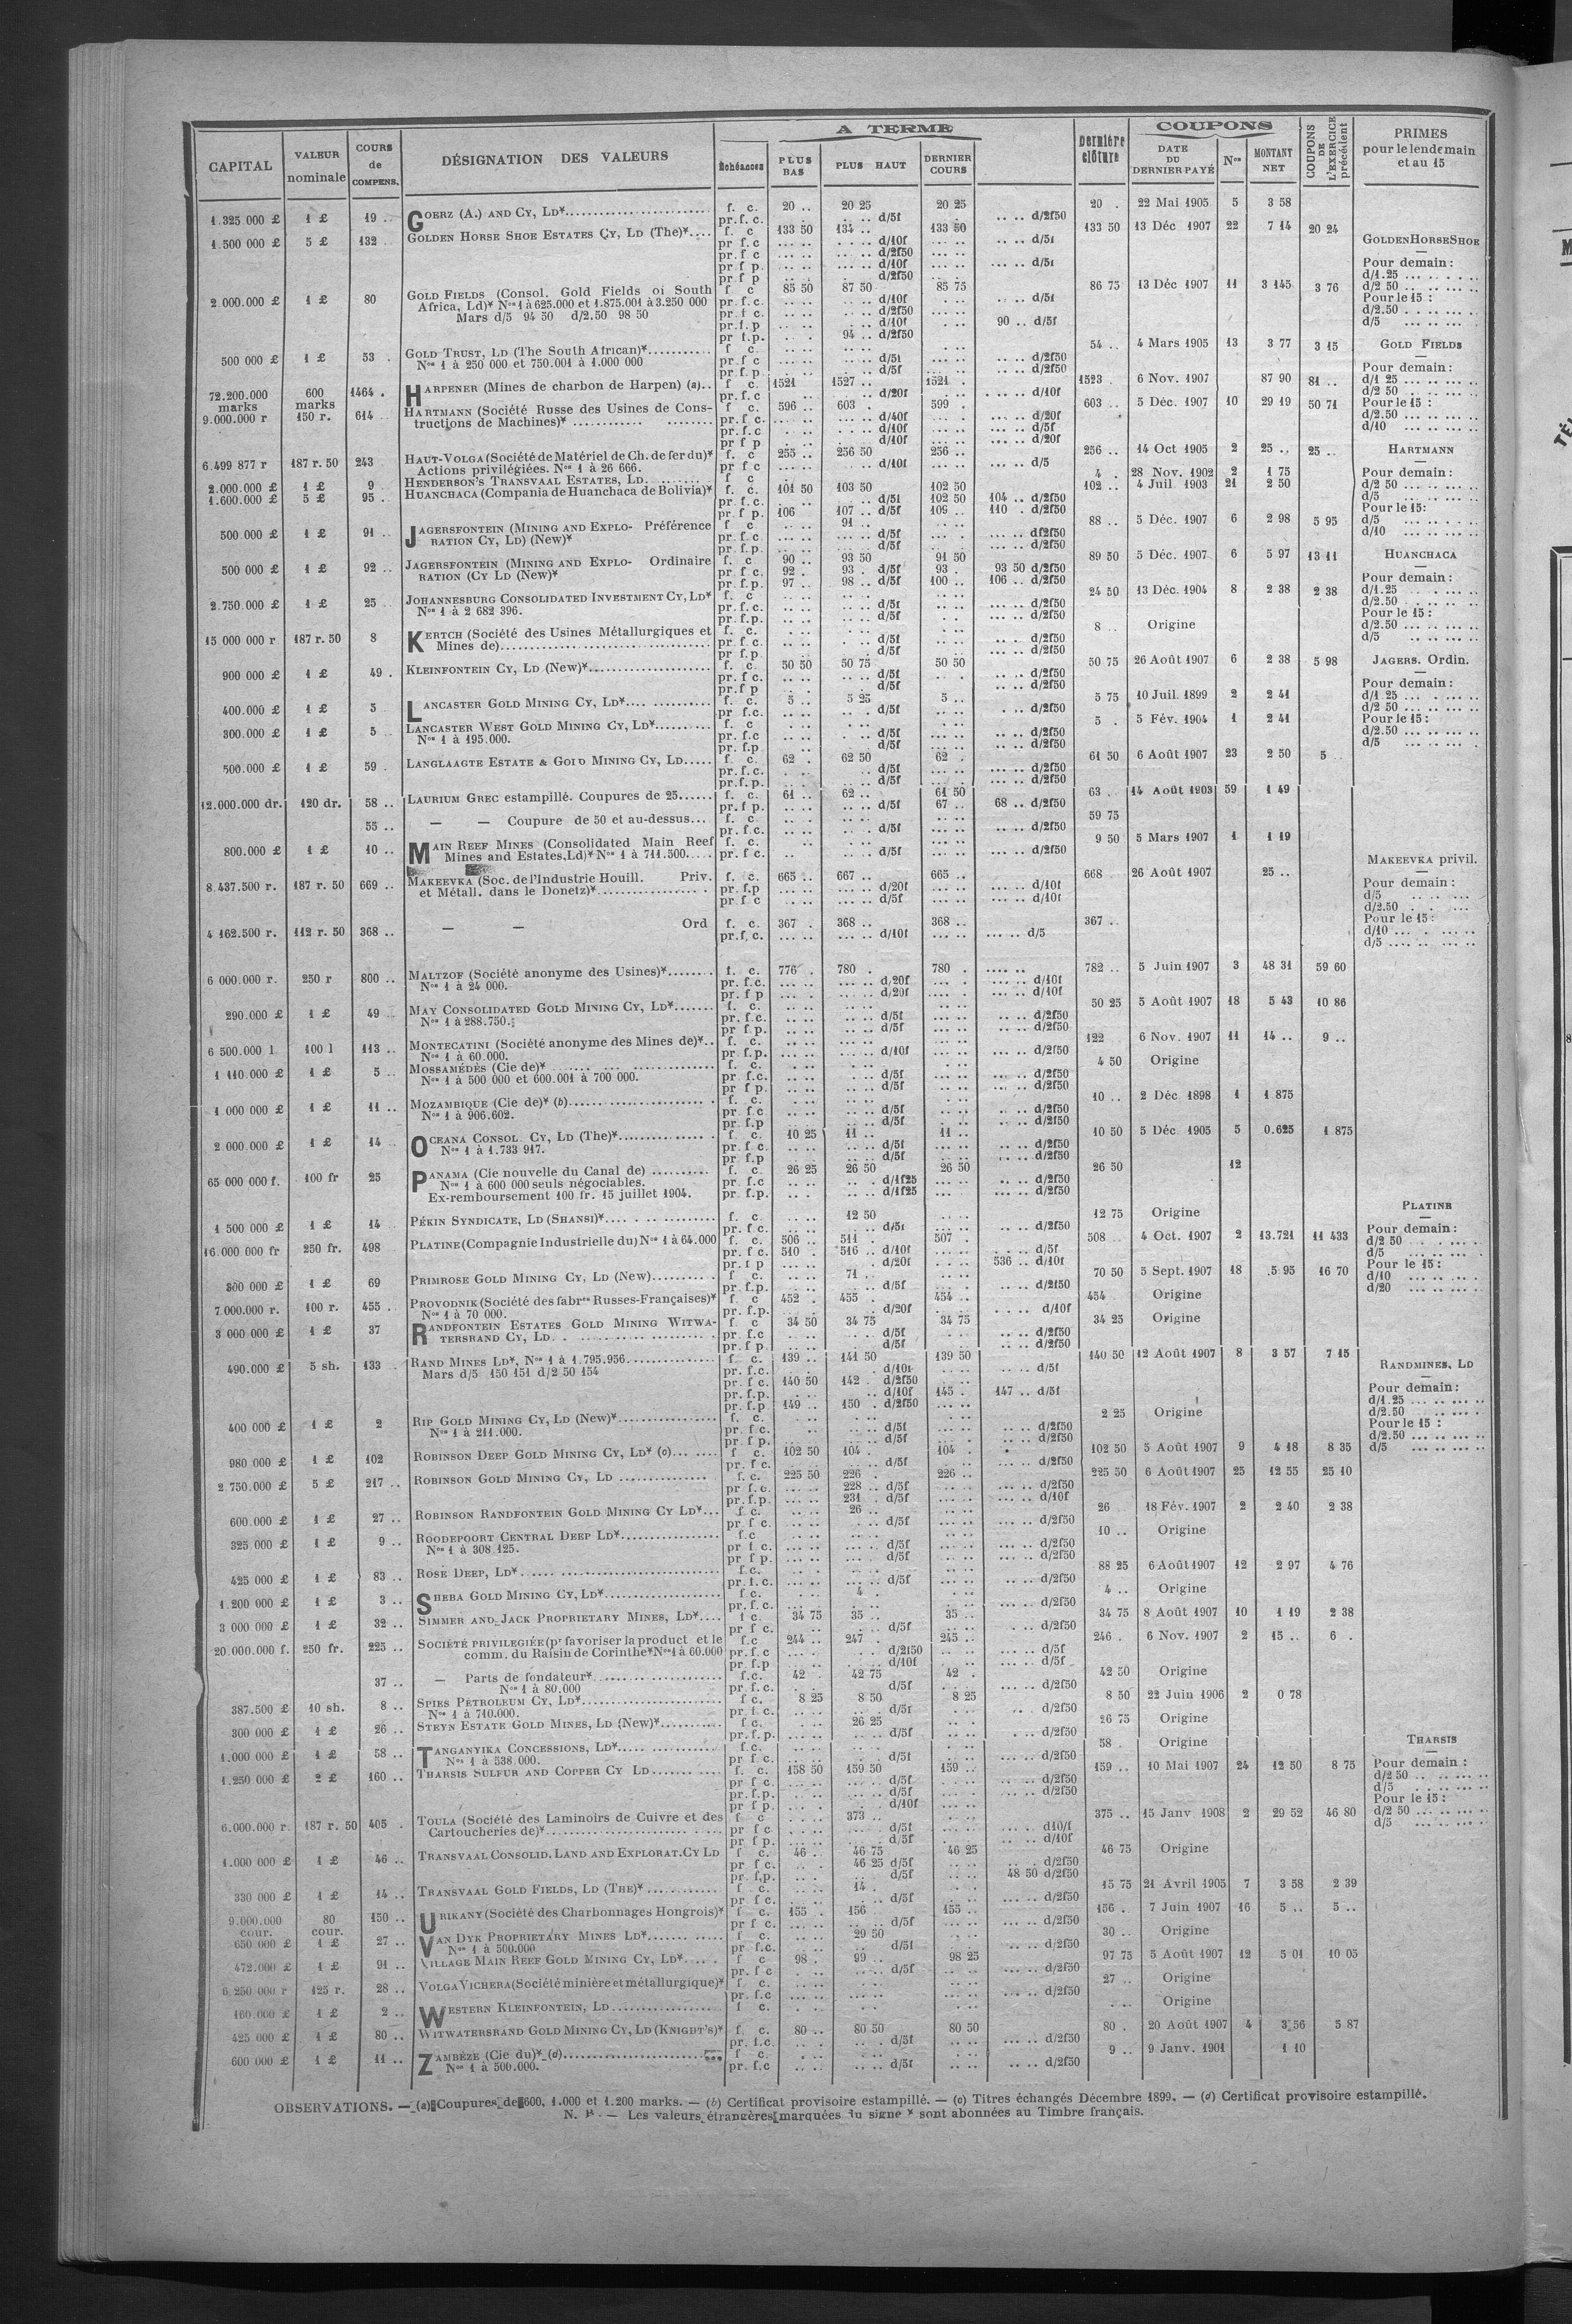 A TERME
COUPONS
CAPITAL | VALEUR nominale | COURS de COMPENS. | DÉSIGNATION DES VALEURS | Échéances | PLUS BAS | PLUS HAUT | DERNIER COURS | Dernière clôture | DATE DU DERNIER PAYÉ | Nos | MONTANT NET | COUPONS DE L'EXERCICE précédent | PRIMES pour le lendemain et au 15
1.325 000 £ 1 £ 19 .. GOERZ (A.) AND CY, LD* f. c. 20 .. 20 25 20 25 20 . 22 Mai 1905 5 3 58
pr.f.c. d/5f d/2f50
1.500 000 £ 5 £ 132 .. GOLDEN HORSE SHOE ESTATES CY, LD (The)* f. c 133 50 134 .. 133 50 133 50 13 Déc 1907 22 7 14 20 24
pr f.c d/10f d/5f
pr.f c d/2f50
pr f p. d/10f d/5f
pr f p d/2f50
2.000.000 £ 1 £ 80 GOLD FIELDS (Consol. Gold Fields of South f c 85 50 87 50 85 75 86 75 13 Déc 1907 11 3 145 3 76
Africa, Ld)* Nos 1 à 625.000 et 1.875.001 à 3.250 000 pr. f. c. d/10f d/5f
Mars d/5 94 50 d/2.50 98 50 pr. f c. d/2f50
pr.f.p d/10f 90 .. d/5f
pr f.p. 94 .. d/2f50
500 000 £ 1 £ 53 . GOLD TRUST, LD (The South African)* f c. 54 .. 4 Mars 1905 13 3 77 3 15
Nos 1 à 250 000 et 750.001 à 1.000 000 pr.f c d/5f d/2f50
pr.f.p d/5f d/2f50
72.200.000 marks 600 marks 1464 . HARPENER (Mines de charbon de Harpen) (a) f c. 1521 1527 .. 1521 . 1523 . 6 Nov. 1907 87 90 81 ..
pr.f.c d/20f d/10f
9.000.000 r 150 r. 614 HARTMANN (Société Russe des Usines de Cons- f c. 596 .. 603 . 599 . 603 .. 5 Déc. 1907 10 29 19 50 71
tructions de Machines)* pr.f c. d/40f d/20f
pr.f.c d/10f d/5f
pr f p d/10f d/20f
6.499 877 r 187 r. 50 243 HAUT-VOLGA (Société de Matériel de Ch. de fer du)* f. c 255 .. 256 50 256 .. 256 .. 14 Oct 1905 2 25 .. 25 ..
Actions privilégiées. Nos 1 à 26 666. pr f c d/10f d/5
2.000.000 £ 1 £ 9 HENDERSON'S TRANSVAAL ESTATES, LD. f c 4 . 28 Nov. 1902 2 1 75
1.600.000 £ 5 £ 95 . HUANCHACA (Compania de Huanchaca de Bolivia)* f. c. 101 50 103 50 102 50 102 .. 4 Juil 1903 21 2 50
pr.f.c. d/5f 102 50 104 .. d/2f50
pr.f p. 106 107 .. d/5f 109 .. 110 . d/2f50
500 000 £ 1 £ 91 .. JAGERSFONTEIN (MINING AND EXPLO- Préférence f c 91 .. 88 .. 5 Déc. 1907 6 2 98 5 95
RATION CY, LD) (New)* pr.f.c d/5f d/2f50
pr.f.p. d/5f d/2f50
500 000 £ 1 £ 92 .. JAGERSFONTEIN (MINING AND EXPLO- Ordinaire f. c 90 .. 93 50 91 50 89 50 5 Déc. 1907 6 5 97 13 11
RATION (CY LD (New)* pr f c. 92 . 93 . d/5f 93 . 93 50 d/2f50
pr.f.p. 97 .. 98 .. d/5f 100 .. 106 .. d/2f50
2.750.000 £ 1 £ 25 JOHANNESBURG CONSOLIDATED INVESTMENT CY, LD* f. c 24 50 13 Déc. 1904 8 2 38 2 38
Nos 1 à 2 682 396. pr.f.c. d/5f d/2f50
pr.f.p. d/5f d/2f50
15 000 000 r 187 r. 50 8 KERTCH (Société des Usines Métallurgiques et f. c. 8 Origine
Mines de) pr.f c. d/5f d/2f50
pr f.p d/5f d/2f50
900 000 £ 1 £ 49 . KLEINFONTEIN CY, LD (New)* f. c. 50 50 50 75 50 50 50 75 26 Août 1907 6 2 38 5 98
pr.f c. d/5f d/2f50
pr.f p d/5f d/2f50
400.000 £ 1 £ 5 LANCASTER GOLD MINING CY, LD* f. c. 5 .. 5 25 5 .. 5 75 10 Juil. 1899 2 2 41
pr.f.c. d/5f d/2f50
300.000 £ 1 £ 5 LANCASTER WEST GOLD MINING CY, LD* f. c 5 . 5 Fév. 1904 1 2 41
Nos 1 à 195.000. pr.f.c d/5f d/2f50
pr.f.p d/5f d/2f50
500.000 £ 1 £ 59 . LANGLAAGTE ESTATE & GOLD MINING CY, LD f c. 62 . 62 50 62 . 61 50 6 Août 1907 23 2 50 5 ..
pr.f.c. d/5f d/2f50
pr.f.p. d/5f d/2f50
12.000.000 dr. 120 dr. 58 .. LAURIUM GREC estampillé. Coupures de 25 f. c. 61 .. 62 .. 61 50 63 . 14 Août 1903 59 1 49
pr.f p. d/5f 67 .. 68 .. d/2f50
55 .. — — Coupure de 50 et au-dessus f. c 59 75
pr.f.c. d/5f d/2f50
800.000 £ 1 £ 10 .. MAIN REEF MINES (Consolidated Main Reef f. c. 9 50 5 Mars 1907 1 1 19
Mines and Estates, Ld)* Nos 1 à 711.500 pr. f c. d/5f d/2f50
8.437.500 r. 187 r. 50 669 .. MAKEEVKA (Soc. de l'Industrie Houill. Priv. f. c. 665 .. 667 .. 665 .. 668 26 Août 1907 25 ..
et Métall. dans le Donetz)* pr.f.p d/20f d/10f
pr f c d/5f d/10f
4 162.500 r. 112 r. 50 368 .. — — Ord f. c. 367 . 368 .. 368 .. 367 ..
pr.f.c. d/10f d/5
6 000.000 r. 250 r 800 .. MALTZOF (Société anonyme des Usines)* f. c. 776 . 780 . 780 . 782 .. 5 Juin 1907 3 48 31 59 60
Nos 1 à 24 000. pr.f.c. d/20f d/10f
pr.f p d/20f d/10f
290.000 £ 1 £ 49 .. MAY CONSOLIDATED GOLD MINING CY, LD* f. c. 50 25 5 Août 1907 18 5 43 10 86
Nos 1 à 288.750. pr.f.c. d/5f d/2f50
pr f.p. d/5f d/2f50
6 500.000 l. 100 l 113 .. MONTECATINI (Société anonyme des Mines de)* f. c. 122 6 Nov. 1907 11 14 .. 9 ..
Nos 1 à 60.000. pr.f.p. d/10f d/2f50
1 110.000 £ 1 £ 5 .. MOSSAMÉDÈS (Cie de)* f. c. 4 50 Origine
Nos 1 à 500 000 et 600.001 à 700 000. pr f.c. d/5f d/2f50
pr f p. d/5f d/2f50
1 000 000 £ 1 £ 11 .. MOZAMBIQUE (Cie de)* (b) f. c. 10 .. 2 Déc. 1898 1 1 875
Nos 1 à 906.602. pr. f c d/5f d/2f50
pr. f.p d/5f d/2f50
2 000.000 £ 1 £ 14 OCEANA CONSOL. CY, LD (The)* f c. 10 25 11 .. 11 .. 10 50 5 Déc. 1905 5 0.625 1 875
Nos 1 à 1.733 917. pr f c. d/5f d/2f50
pr f.p d/5f d/2f50
65 000 000 f. 100 fr 25 PANAMA (Cie nouvelle du Canal de) f. c. 26 25 26 50 26 50 26 50 12
Nos 1 à 600 000 seuls négociables. pr f.c d/1f25 d/2f50
Ex-remboursement 100 fr. 15 juillet 1904. pr. f.p. d/1f25 d/2f50
1 500 000 £ 1 £ 14 PÉKIN SYNDICATE, LD (SHANSI)* f. c 12 50 12 75 Origine
pr f.c. d/5f d/2f50
16.000 000 fr 250 fr. 498 PLATINE (Compagnie Industrielle du) Nos 1 à 64.000 f. c. 506 .. 511 . 507 . 508 .. 4 Oct. 1907 2 13.721 11 433
pr. f c. 510 . 516 .. d/10f d/5f
pr.f p d/20f 536 .. d/10f
300 000 £ 1 £ 69 PRIMROSE GOLD MINING CY, LD (New) f c. 71 . 70 50 5 Sept. 1907 18 5 95 16 70
pr.f.p. d/5f d/2f50
7.000.000 r. 100 r. 455 . PROVODNIK (Société des fabres Russes-Françaises)* f. c 452 . 455 . 454 .. 454 Origine
Nos 1 à 70 000. pr. f.p. d/20f d/10f
3 000 000 £ 1 £ 37 RANDFONTEIN ESTATES GOLD MINING WITWA- f c 34 50 34 75 34 75 34 25 Origine
TERSRAND CY, LD pr. f.c d/5f d/2f50
pr f p. d/5f d/2f50
490.000 £ 5 sh. 133 RAND MINES LD*, Nos 1 à 1.795.956 f c. 139 .. 141 50 139 50 140 50 12 Août 1907 8 3 57 7 15
Mars d/5 150 151 d/2 50 154 pr. f.c. d/10f d/5f
pr. f.c. 140 50 142 . d/2f50
pr.f.p. d/10f 145 . 147 .. d/5f
pr. f.p. 149 .. 150 . d/2f50
400 000 £ 1 £ 2 RIP GOLD MINING CY, LD (New)* f. c. 2 25 Origine
Nos 1 à 211.000. pr fc. d/5f d/2f50
pr f p. d/5f d/2f50
980 000 £ 1 £ 102 ROBINSON DEEP GOLD MINING CY, LD* (c) f c. 102 50 104 . 104 . 102 50 5 Août 1907 9 4 18 8 35
pr. f c. d/5f d/2f50
2 750.000 £ 5 £ 217 .. ROBINSON GOLD MINING CY, LD f. c. 225 50 226 . 226 .. 225 50 6 Août 1907 25 12 55 25 10
pr f.c. 228 .. d/5f d/2f50
pr. f.p. 231 . d/5f d/10f
600.000 £ 1 £ 27 .. ROBINSON RANDFONTEIN GOLD MINING CY LD* f.c. 26 .. 26 18 Fév. 1907 2 2 40 2 38
pr f c. d/5f d/2f50
325 000 £ 1 £ 9 .. ROODEPOORT CENTRAL DEEP LD* f.c 10 .. Origine
Nos 1 à 308 125. pr f c. d/5f d/2f50
pr f p. d/5f d/2f50
425 000 £ 1 £ 83 .. ROSE DEEP, LD* f.c. 88 25 6 Août 1907 12 2 97 4 76
pr. f.c. d/5f d/2f50
1.200 000 £ 1 £ 3 .. SHEBA GOLD MINING CY, LD* f c. 4 . 4 .. Origine
pr. f.c. d/2f50
3 000 000 £ 1 £ 32 .. SIMMER AND JACK PROPRIETARY MINES, LD* f c. 34 75 35 .. 35 .. 34 75 8 Août 1907 10 1 19 2 38
pr f c. d/5f d/2f50
20.000.000 f. 250 fr. 225 .. SOCIÉTÉ PRIVILEGIÉE (pr favoriser la product et le f.c 244 .. 247 . 245 .. 246 . 6 Nov. 1907 2 15 .. 6 .
comm. du Raisin de Corinthe* Nos 1 à 60.000 pr. f.c d/2f50 d/5f
pr. f.p d/10f d/5f
37 .. — Parts de fondateur* f.c. 42 . 42 75 42 . 42 50 Origine
Nos 1 à 80.000 pr. f.c. d/5f d/2f50
387.500 £ 10 sh. 8 .. SPIES PÉTROLEUM CY, LD* f c. 8 25 8 50 8 25 8 50 22 Juin 1906 2 0 78
Nos 1 à 710.000. pr. f.c. d/5f d/2f50
300 000 £ 1 £ 26 .. STEYN ESTATE GOLD MINES, LD (New)* f c. 26 25 26 75 Origine
pr. f. p. d/5f d/2f50
1.000 000 £ 1 £ 58 .. TANGANYIKA CONCESSIONS, LD* f.c. 58 . Origine
Nos 1 à 538.000. pr f c. d/5f d/2f50
1.250 000 £ 2 £ 160 .. THARSIS SULFUR AND COPPER CY LD f. c. 158 50 159 50 159 .. 159 .. 10 Mai 1907 24 12 50 8 75
pr f c. d/5f d/2f50
pr. f.p. d/5f d/2f50
pr f p. d/10f
6.000.000 r. 187 r. 50 405 . TOULA (Société des Laminoirs de Cuivre et des f c 373 .. 375 .. 15 Janv 1908 2 29 52 46 80
Cartoucheries de)* pr f c d/5f d10/f
pr f p. d/5f d/10f
1.000 000 £ 1 £ 46 .. TRANSVAAL CONSOLID. LAND AND EXPLORAT. CY LD f c. 46 .. 46 75 46 25 46 75 Origine
pr f c. 46 25 d/5f d/2f50
pr. f,p. d/5f 48 50 d/2f50
330 000 £ 1 £ 14 .. TRANSVAAL GOLD FIELDS, LD (THE)* f c. 14 . 15 75 21 Avril 1905 7 3 58 2 39
pr f c. d/5f d/2f50
9.000.000 cour. 80 cour. 150 .. URIKANY (Société des Charbonnages Hongrois)* f c. 155 . 156 155 .. 156 .. 7 Juin 1907 16 5 .. 5 ..
pr f c. d/5f d/2f50
650 000 £ 1 £ 27 .. VAN DYK PROPRIETARY MINES LD* f c. 29 50 30 .. Origine
Nos 1 à 500.000 pr f.c. d/5f d/2f50
472.000 £ 1 £ 91 .. VILLAGE MAIN REEF GOLD MINING CY, LD* f c 98 . 99 .. 98 25 97 75 5 Août 1907 12 5 01 10 05
pr. f c d/5f d/2f50
6 250 000 r 125 r. 28 .. VOLGA VICHERA (Société minière et métallurgique)* f c. 27 .. Origine
pr. f.c d/2f50
160.000 £ 1 £ 2 .. WESTERN KLEINFONTEIN, LD f c. Origine
425 000 £ 1 £ 80 .. WITWATERSRAND GOLD MINING CY, LD (KNIGHT'S)* f. c. 80 .. 80 50 80 50 80 . 20 Août 1907 4 3 56 5 87
pr. f.c. d/5f d/2f50
600 000 £ 1 £ 11 .. ZAMBÈZE (Cie du)* (d) f c. 9 .. 9 Janv. 1901 1 10
Nos 1 à 500.000. pr. f.c d/5f d/2f50
GOLDEN HORSE SHOE
Pour demain :
d/1.25
d/2 50
Pour le 15 :
d/2.50
d/5
GOLD FIELDS
Pour demain :
d/1 25
d/2 50
Pour le 15 :
d/2.50
d/10
HARTMANN
Pour demain :
d/2 50
d/5
Pour le 15:
d/5
d/10
HUANCHACA
Pour demain :
d/1.25
d/2.50
Pour le 15 :
d/2.50
d/5
JAGERS. Ordin.
Pour demain :
d/1 25
d/2 50
Pour le 15 :
d/2.50
d/5
MAKEEVKA privil.
Pour demain :
d/5
d/2.50
Pour le 15 :
d/10
d/5
PLATINE
Pour demain :
d/2 50
d/5
Pour le 15 :
d/10
d/20
RANDMINES, LD
Pour demain :
d/1.25
d/2.50
Pour le 15 :
d/2.50
d/5
THARSIS
Pour demain :
d/2 50
d/5
Pour le 15 :
d/2 50
d/5
OBSERVATIONS. — (a) Coupures de 600, 1.000 et 1.200 marks. — (b) Certificat provisoire estampillé. — (c) Titres échangés Décembre 1899. — (d) Certificat provisoire estampillé.
N. B. — Les valeurs étrangères marquées du signe * sont abonnées au Timbre français.